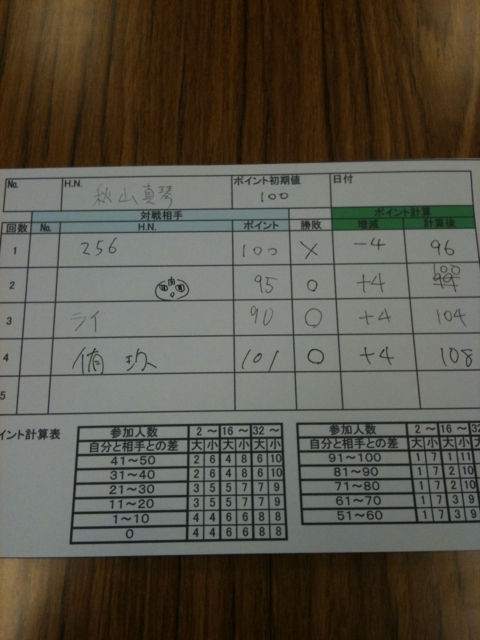 No. H.N. 秋山真琴 ポイント初期値 100 日付
対戦相手 ポイント計算
回数 No. H.N. ポイント 勝敗 増減 計算後
1 256 100 × -4 96
2 95 ○ +4 100
3 ライ 90 ○ +4 104
4 101 ○ +4 108
5
イント計算表
参加人数 2 ～ 16 ～ 32 ～
自分と相手との差 大 小 大 小 大 小
41～50 2 6 4 8 6 10
31～40 2 6 4 8 6 10
21～30 3 5 5 7 7 9
11～20 3 5 5 7 7 9
1～10 4 4 6 6 8 8
0 4 4 6 6 8 8
参加人数 2 ～ 16 ～ 32
自分と相手との差 大 小 大 小
91～100 1 7 1 11
81～90 1 7 2 10
71～80 1 7 2 10
61～70 1 7 3 9
51～60 1 7 3 9